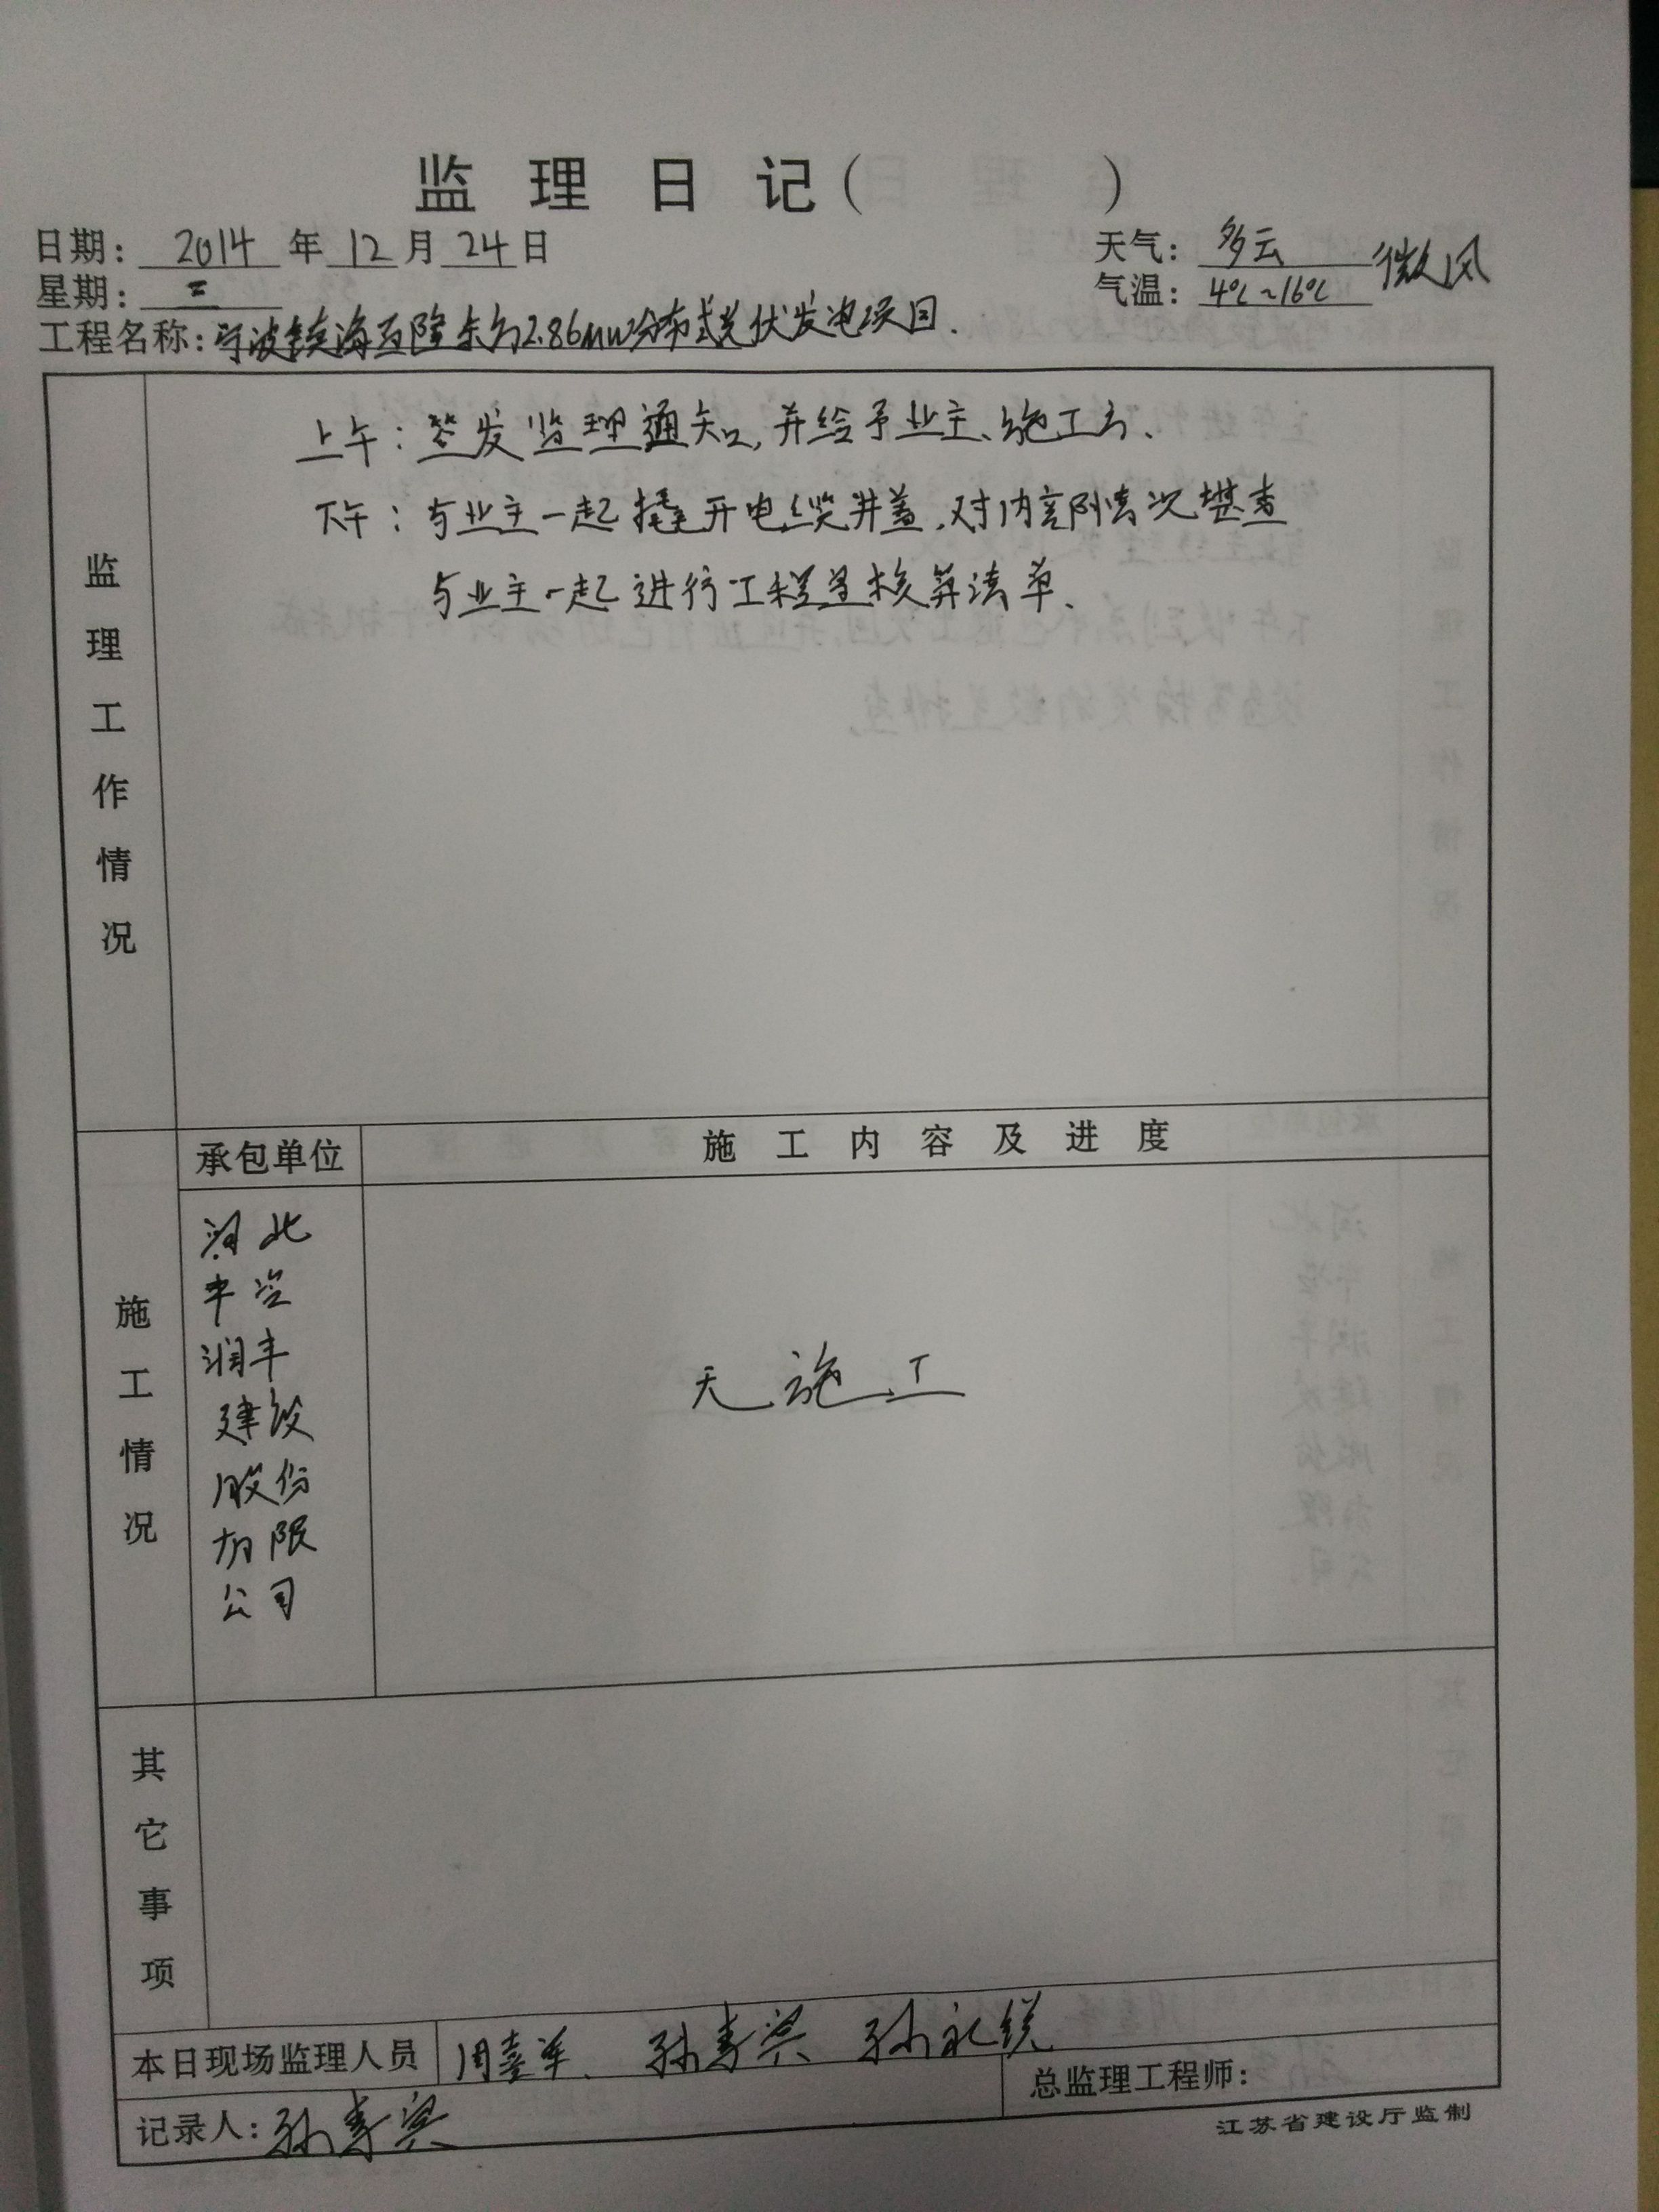 监理日记( )
日期: 2014 年 12 月 24 日
天气: 多云 微风
星期: 三
气温: 4℃~16℃
工程名称: 宁波镇海百隆东方2.86MW分布式光伏发电项目.
监理工作情况
上午: 签发监理通知, 并给予业主、施工方、
下午: 与业主一起撬开电缆井盖, 对内部情况勘查
与业主一起进行工程量核算清单、
承包单位
施工内容及进度
施工情况
河北
润丰
建设
股份
有限
公司
无施工
其它事项
本日现场监理人员 周喜军、孙寿宾 孙礼锐
记录人: 孙寿宾
总监理工程师:
江苏省建设厅监制